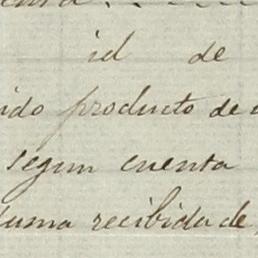 id de
ido producto de
segun cuenta
suma recibida de